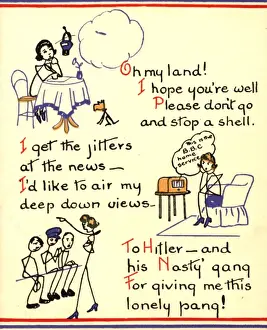 Oh my land!
I hope you're well
Please don't go
and stop a shell.
I get the jitters
at the news—
I'd like to air my
deep down views—
This is the
B.B.C
home
service
To Hitler—and
his 'Nasty' gang
For giving me this
lonely pang!